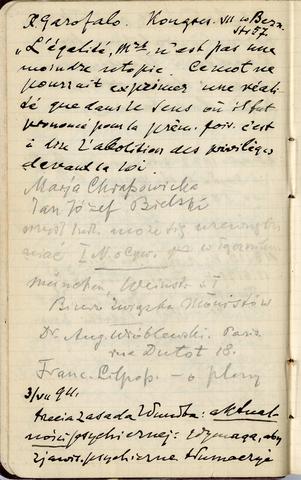 R. Garofalo. Kongres. VII w Bern.
str. 57
"L'égalité, n'est pas une
moindre utopie. Ce mot ne
pourrait exprimer une réali-
té que dans le sens où il fut
prononcé pour la prem. fois. c'est
à dire l'abolition des privilèges
devant la loi.
Marja Chrapowicka
Jan Józef Bielski
może się
I N.
München,
Biuro Związku Monistów
Dr. Aug. Wróblewski. Paris
rue Dutot 18.
Franc. Lilpop. – o
3/VII 911.
trzecia zasada Wundta: aktual-
ności psychicznej: wymaga, aby
zjawis. psychiczne tłumaczyć